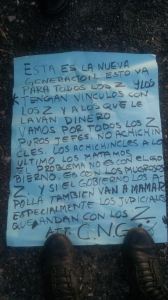 ESTA ES LA NUEVA
GENERACION ESTO VA
PARA TODOS LOS Z Y LOS
TENGAN VINCULOS CON
LOS Z Y A LOS QUE LE
LAVAN DINERO
VAMOS POR TODOS LOS Z
PUROS JEFES. NO ACHICHIN
CLES. LOS ACHICHINCLES A LO
ULTIMO LOS MATAMOS
EL PROBLEMA NO ES CON EL GO
BIERNO. ES CON LOS MUGROSOS
Z. Y SI EL GOBIERNO LOS
POLLA TAMBIEN VAN A MAMAR
ESPECIALMENTE LOS JUDICIALES
QUE ANDAN CON LOS Z.
ATT C.N.G